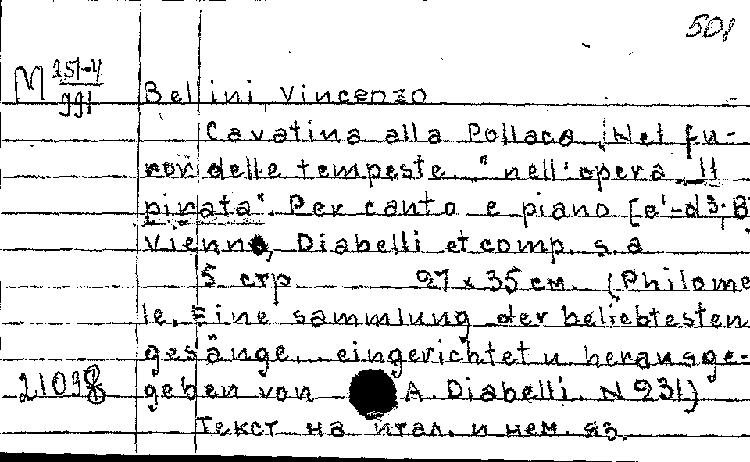 501
M 251-4/991
Bellini Vincenzo
Cavatina alla Pollaca „Nel fu-
ror delle tempeste" nell'opera Il
pirata". Per canto e piano [e'-d3; B]
Vienna, Diabelli et comp. s. a
5 стр 27 x 35 см. (Philome
le. Eine sammlung der beliebtesten
gesänge... eingerichtet u herausge-
21098 geben von A. Diabelli. N 231)
Текст на итал. и нем. яз.